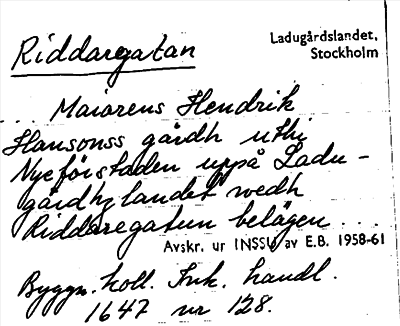 Riddaregatan
Ladugårdslandet,
Stockholm
... Maiorens Hendrik
Hansonss gårdh uthi
Nyeförstaden uppå Ladu-
gårdhzlandet wedh
Riddaregatun belägen ...
Avskr. ur INSSU av E.B. 1958-61
Byggn. koll. Ink. handl.
1647 nr 128.